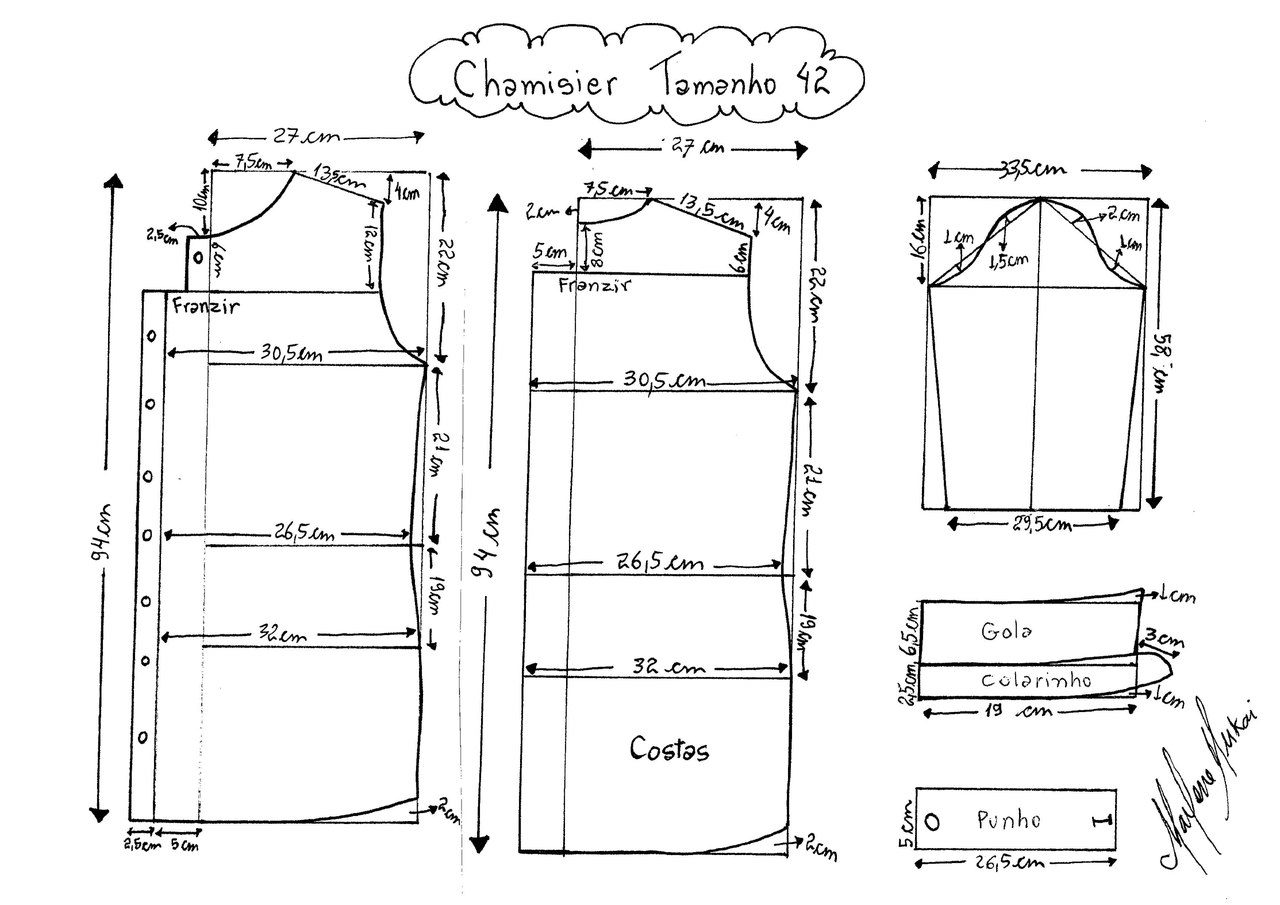 Chamisier Tamanho 42
27 cm
7,5cm
13,5cm
4cm
10cm
2,5cm
6cm
12cm
22cm
Franzir
30,5cm
21cm
94cm
26,5cm
19cm
32cm
2cm
2,5cm
5cm
27 cm
7,5cm
13,5cm
2cm
4cm
5cm
8cm
9cm
Franzir
22cm
30,5.cm
21cm
94cm
26,5.cm
19cm
32 cm
Costas
2cm
33,5cm
16cm
1cm
1,5cm
2cm
1cm
58,cm
29,5cm
1cm
6,5cm
Gola
3cm
2,5cm
Colarinho
1cm
19 cm
5cm
Punho
26,5cm
Marlene Mukai